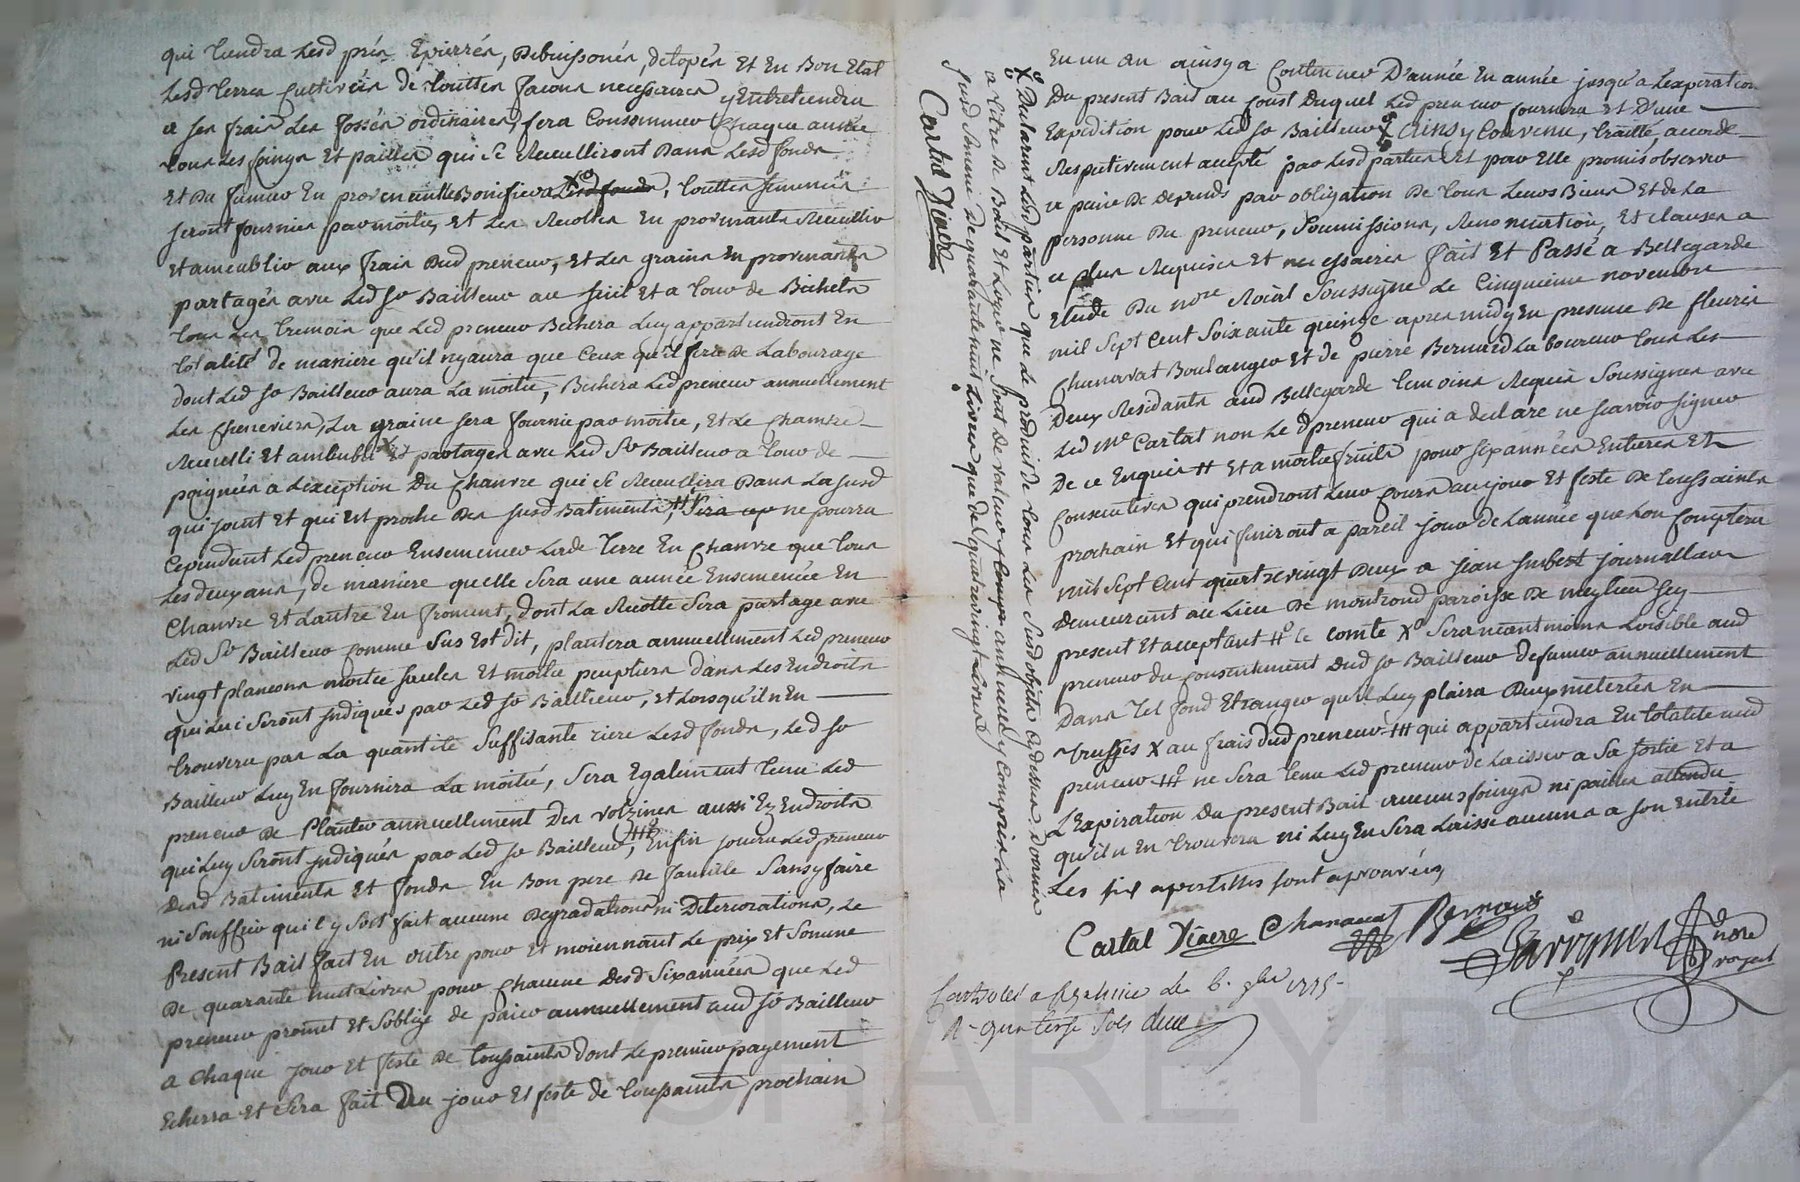 qui tiendra lesd prés Epierrés, Debuissonés, detopés Et En Bon Etat
lesd terres Cultivées de touttes façons necessaires y Entretiendra
a ses frais les fossés ordinaires, fera Consommer Chaque année
tous les foings Et pailles qui se Recueilliront Dans lesd fonds
Et Du fumier En provenent Bonifiera lesd fonds, touttes semences
seront fournies par moitié, Et les Recoltes En provenants Recueillir
Et ameublir aux frais dud preneur, Et les grains En provenants
partagés avec led sr Bailleur au sueil Et a tour de Bichets
tous les tremois que led preneur Bechera luy appartiendront En
totalité de maniere qu'il nyaura que Ceux qu'il fera De Labourage
dont led sr Bailleur aura La moitié, Bechera led preneur annuellement
les cheneviers, la graine sera fournie par moitié, Et le chanvre
Recueilli Et ambubli Et partager avec led Sr Bailleur a tour de
poignées a Lexception Du Chanvre qui se Recueillira Dans la susd
qui joint Et qui Est proche Des susd Batiments, ne pourra
Cependant led preneur Ensemencer lade terre En Chanvre que tous
les deux ans, de maniere quelle sera une année Ensemencée En
Chanvre Et Lautre En froment, dont La Recolte sera partagé avec
led Sr Bailleur comme sus Est dit, plantera annuellement led preneur
vingt plançons moitié saules Et moitié peupliers dans les Endroits
qui lui seront Indiqués par led sr Bailleur, Et Lorsqu'il n'En
trouvera pas La quantité suffisante riere lesd fonds, led sr
Bailleur luy En fournira La moitié, sera Egalement tenu led
preneur de planter annuellement Des Vorzines aussi Ez Endroits
qui luy seront Indiqués par led sr Bailleur, Enfin jouira led preneur
Desd Batiments Et fonds En Bon pere de famille sans y faire
ni souffrir qu'il y soit fait aucune Degradations ni Deteriorations, Le
present Bail fait En outre pour Et moiennant Le prix Et somme
De quarante huit Livres pour chacune desd six années que led
preneur promet Et s'oblige de paier annuellement aud sr Bailleur
a chaque jour Et feste de toussaints dont Le premier payement
Echerra Et sera fait au jour Et feste de toussaints prochain
Cartal Viaere
susd somme de quarante huit Livres que de quatre vingt Livres
a titre de Bail Et Loyer ne sont de valeur annuelle y Compris La
Xo Declarent lesd parties que Le produit de tous les susd objets cy dessus donnés
En un an ainsy a Continuer D'année En année jusqu'a Lexpiration
Du present Bail au Coust Duquel led preneur fournira Et D'une
Expedition pour led sr Bailleur Ainsy Convenu, traitté, accordé
Respectivement accepté par lesd parties Et par Elle promis observer
a peine De depends par obligation De tous leurs Biens Et de La
personne Du preneur, Soumissions, Renonciation, Et clauses a
ce plus Requises Et necessaires fait Et Passé a Bellegarde
Etude Du nore Roial Soussigné Le Cinquieme novembre
mil sept cent soixante quinze apres midy En presence De fleuri
Chanavat Boulanger Et de pierre Bernard Laboureur tous les
Deux Residants aud Bellegarde temoins Requis soussignes avec
led Me Cartal non Le d preneur qui a declaré ne scavoir signer
De ce Enquis # Et a moitié fruits pour six années Entieres Et
Consecutives qui prendront leur cours au jour Et feste De toussaints
prochain Et qui finiront a pareil jour de Lannée que Lon Comptera
mil sept cent quatrevingt Deux a jean Imbert journallier
Demeurant au Lieu De montrond paroisse De meylieu Icy
present Et acceptant #o le comte Xo sera neantmoins Loisible aud
preneur du Consentement Dud sr Bailleur De fumer annuellement
Dans tel fond Etranger qu'il Luy plaira Deux meterées En
Truffes X au frais dud preneur ### qui appartiendra En totalité aud
preneur ###o ne sera tenu led preneur de Laisser a sa sortie Et a
L'Expiration Du present Bail aucuns foings ni pailles attendu
qu'il n En trouvera ni Luy En sera Laissé aucuns a son Entrée
Les six apostilles sont aprouvées
Cartal Viaere Chanavat Bernard
nore
royal
a Le 6. 9bre 1775.
R quatorze sols